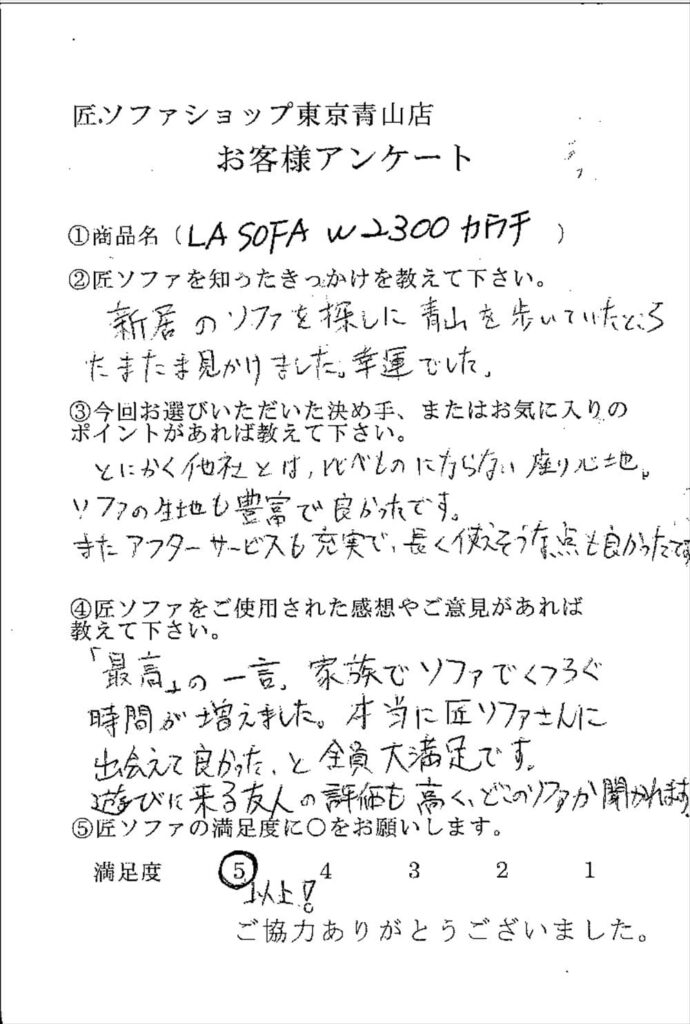 匠.ソファショップ東京青山店
お客様アンケート
①商品名（LA SOFA W2300 カウチ）
②匠ソファを知ったきっかけを教えて下さい。
新居のソファを探しに青山を歩いていたところ
たまたま見かけました。幸運でした。
③今回お選びいただいた決め手、またはお気に入りの
ポイントがあれば教えて下さい。
とにかく他社とは、比べものにならない座り心地。
ソファの生地も豊富で良かったです。
またアフターサービスも充実で、長く使えそうな点も良かったです
④匠ソファをご使用された感想やご意見があれば
教えて下さい。
「最高」の一言。家族でソファでくつろぐ
時間が増えました。本当に匠ソファさんに
出会えて良かった、と全員大満足です。
遊びに来る友人の評価も高く、どこのソファか聞かれます。
⑤匠ソファの満足度に○をお願いします。
満足度 5 4 3 2 1
以上!
ご協力ありがとうございました。